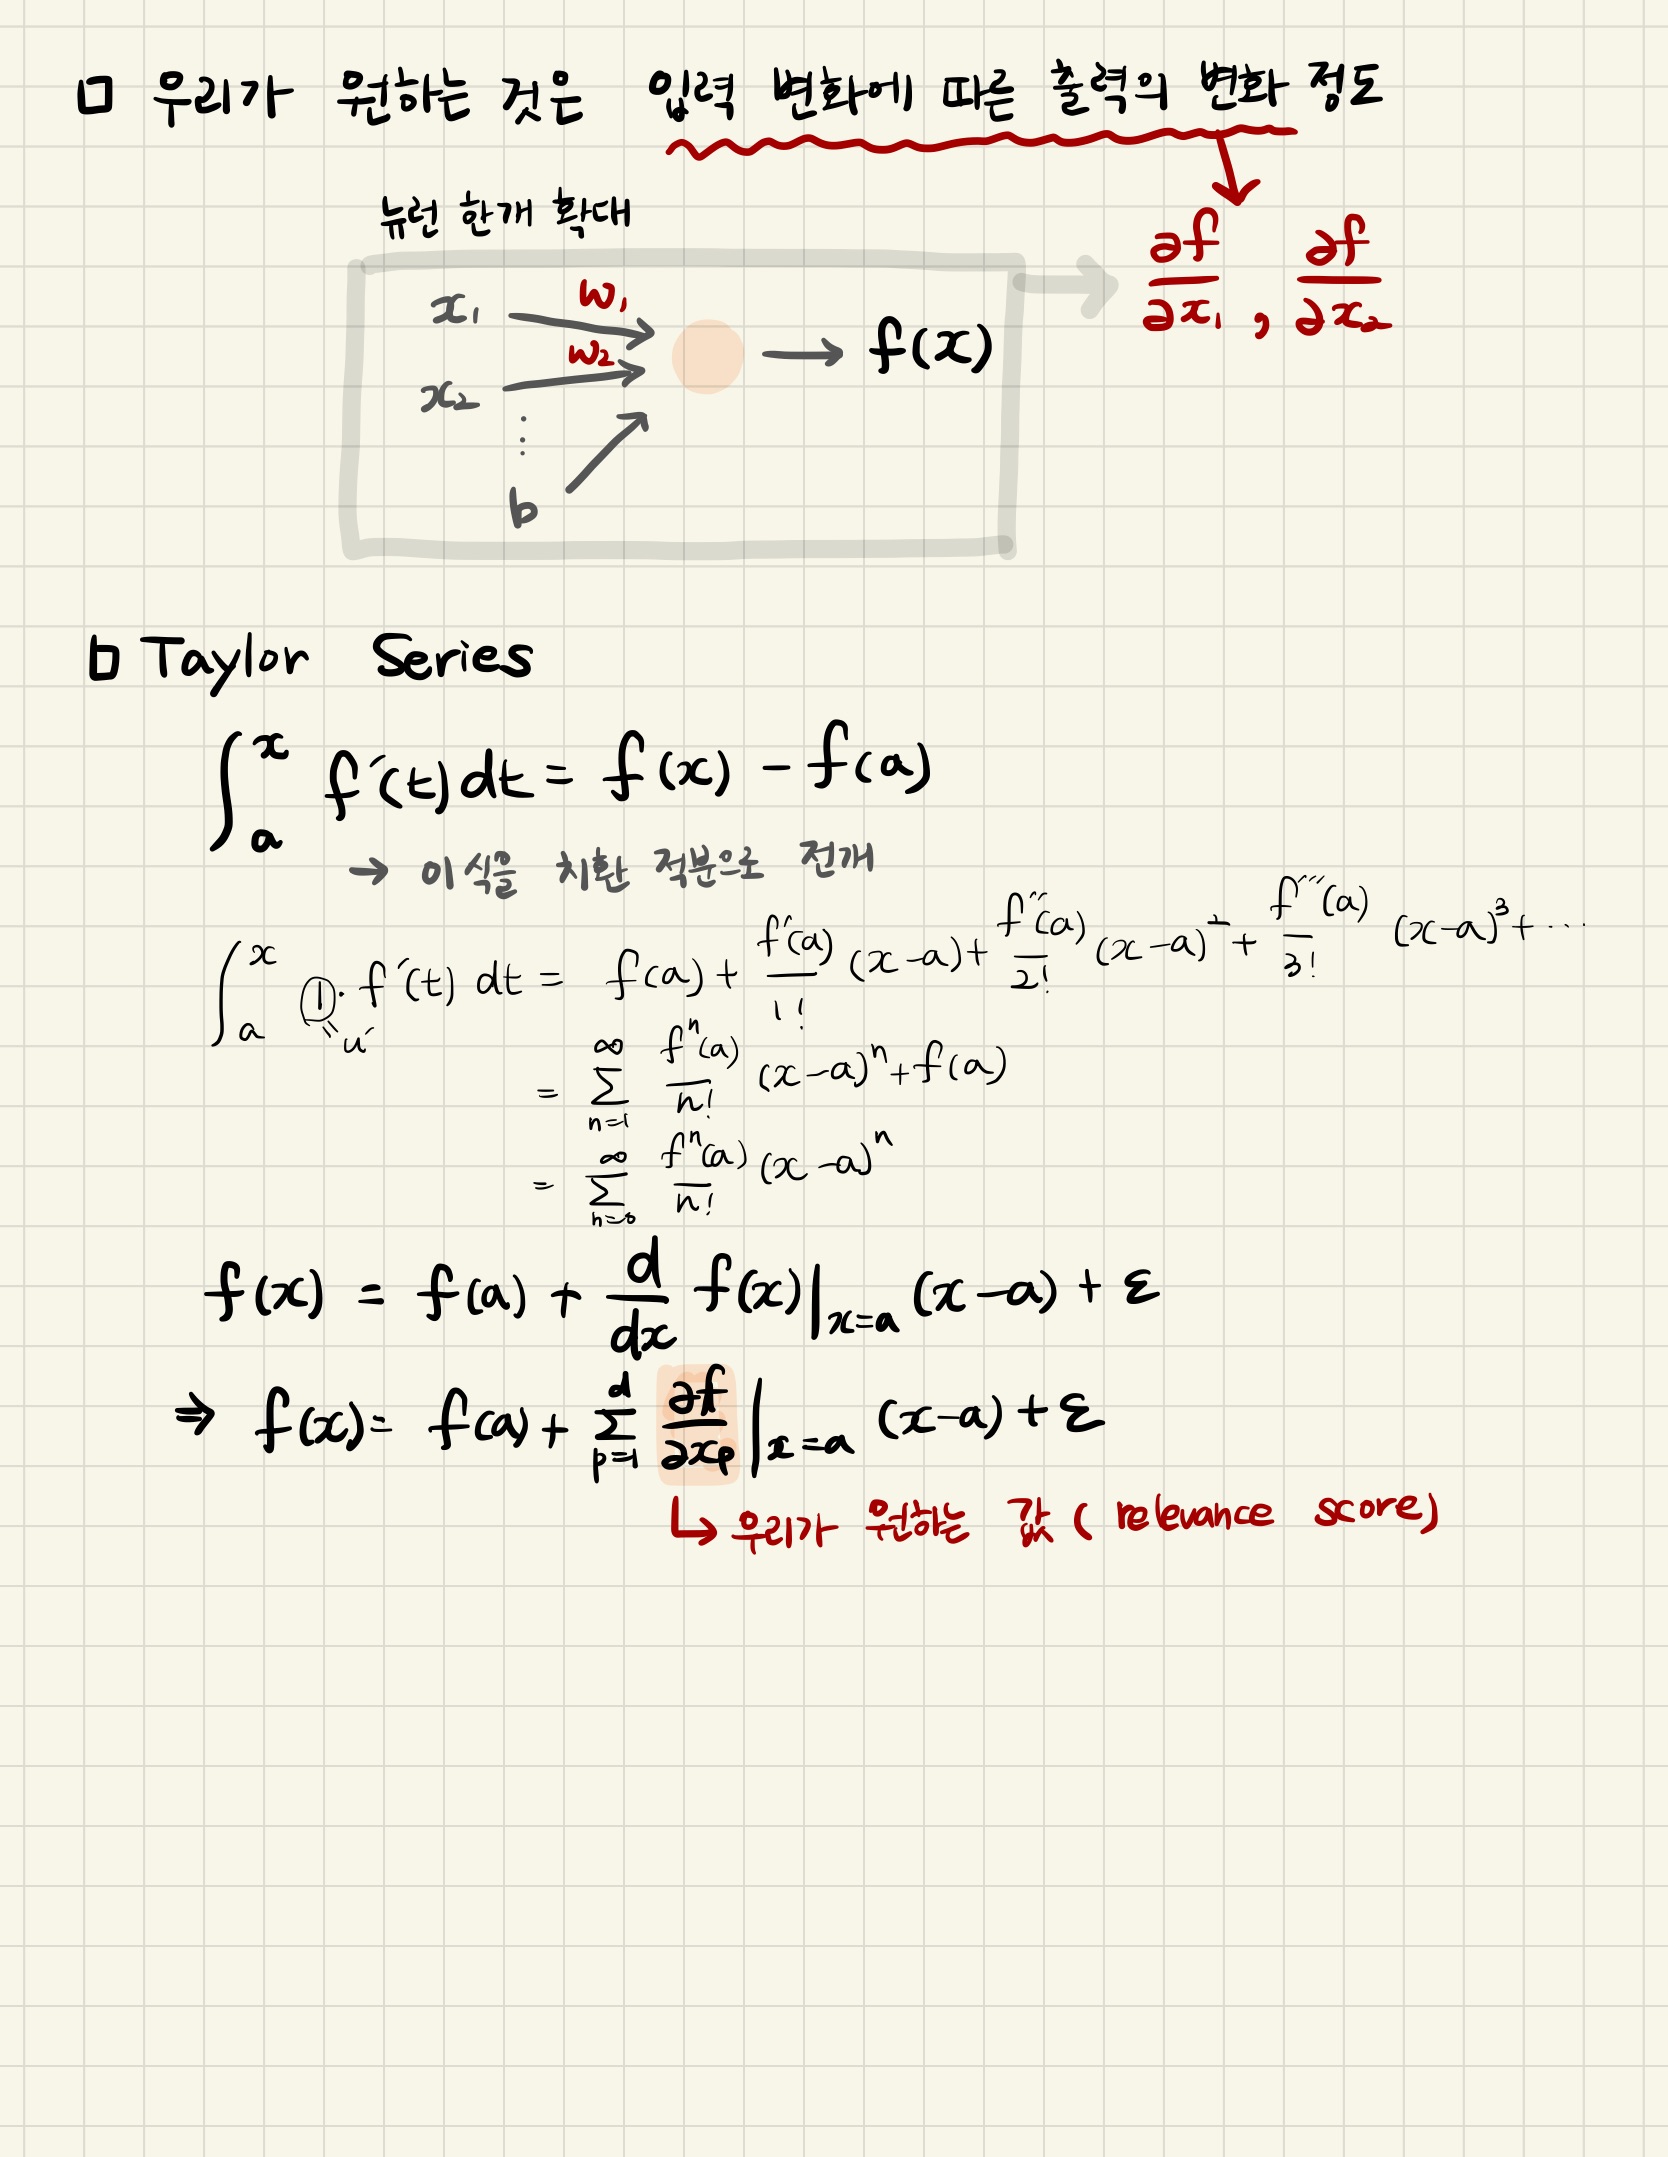 우리가 원하는 것은 입력 변화에 따른 출력의 변화 정도
뉴런 한개 확대
∂f/∂x₁ , ∂f/∂x₂
x₁ w₁
w₂
x₂
→ f(x)
⋮
b
Taylor Series
∫ₐˣ f′(t) dt = f(x) - f(a)
→ 이 식을 치환 적분으로 전개
∫ₐˣ ①· f′(t) dt = f(a) + f′(a)/1! (x-a) + f″(a)/2! (x-a)² + f‴(a)/3! (x-a)³ + ⋯
= u′
= ∑_{n=1}^{∞} fⁿ(a)/n! (x-a)ⁿ + f(a)
= ∑_{n=0}^{∞} fⁿ(a)/n! (x-a)ⁿ
f(x) = f(a) + d/dx f(x)|_{x=a} (x-a) + ε
⇒ f(x) = f(a) + ∑_{p=1}^{d} ∂f/∂x_p |_{x=a} (x-a) + ε
↳ 우리가 원하는 값 ( relevance score)